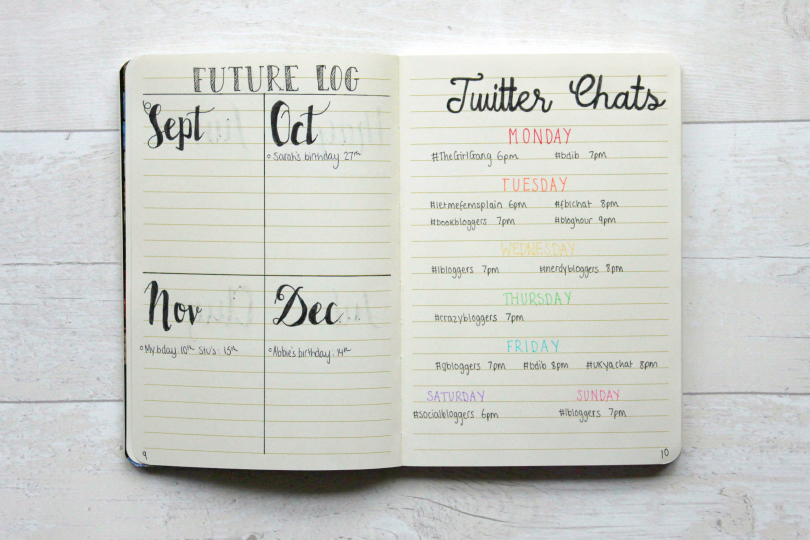 FUTURE LOG
Sept
Oct
Sarah's birthday 27th
Nov
My bday 10th Stu's 15th
Dec
Abbie's birthday 14th
9
Twitter Chats
MONDAY
#TheGirlGang 6pm #bdib 7pm
TUESDAY
#letmefemsplain 6pm #fblchat 8pm
#bookbloggers 7pm #bloghour 9pm
WEDNESDAY
#lbloggers 7pm #nerdybloggers 8pm
THURSDAY
#crazybloggers 7pm
FRIDAY
#gbloggers 7pm #bdib 8pm #UKyachat 8pm
SATURDAY SUNDAY
#socialbloggers 6pm #lbloggers 7pm
10